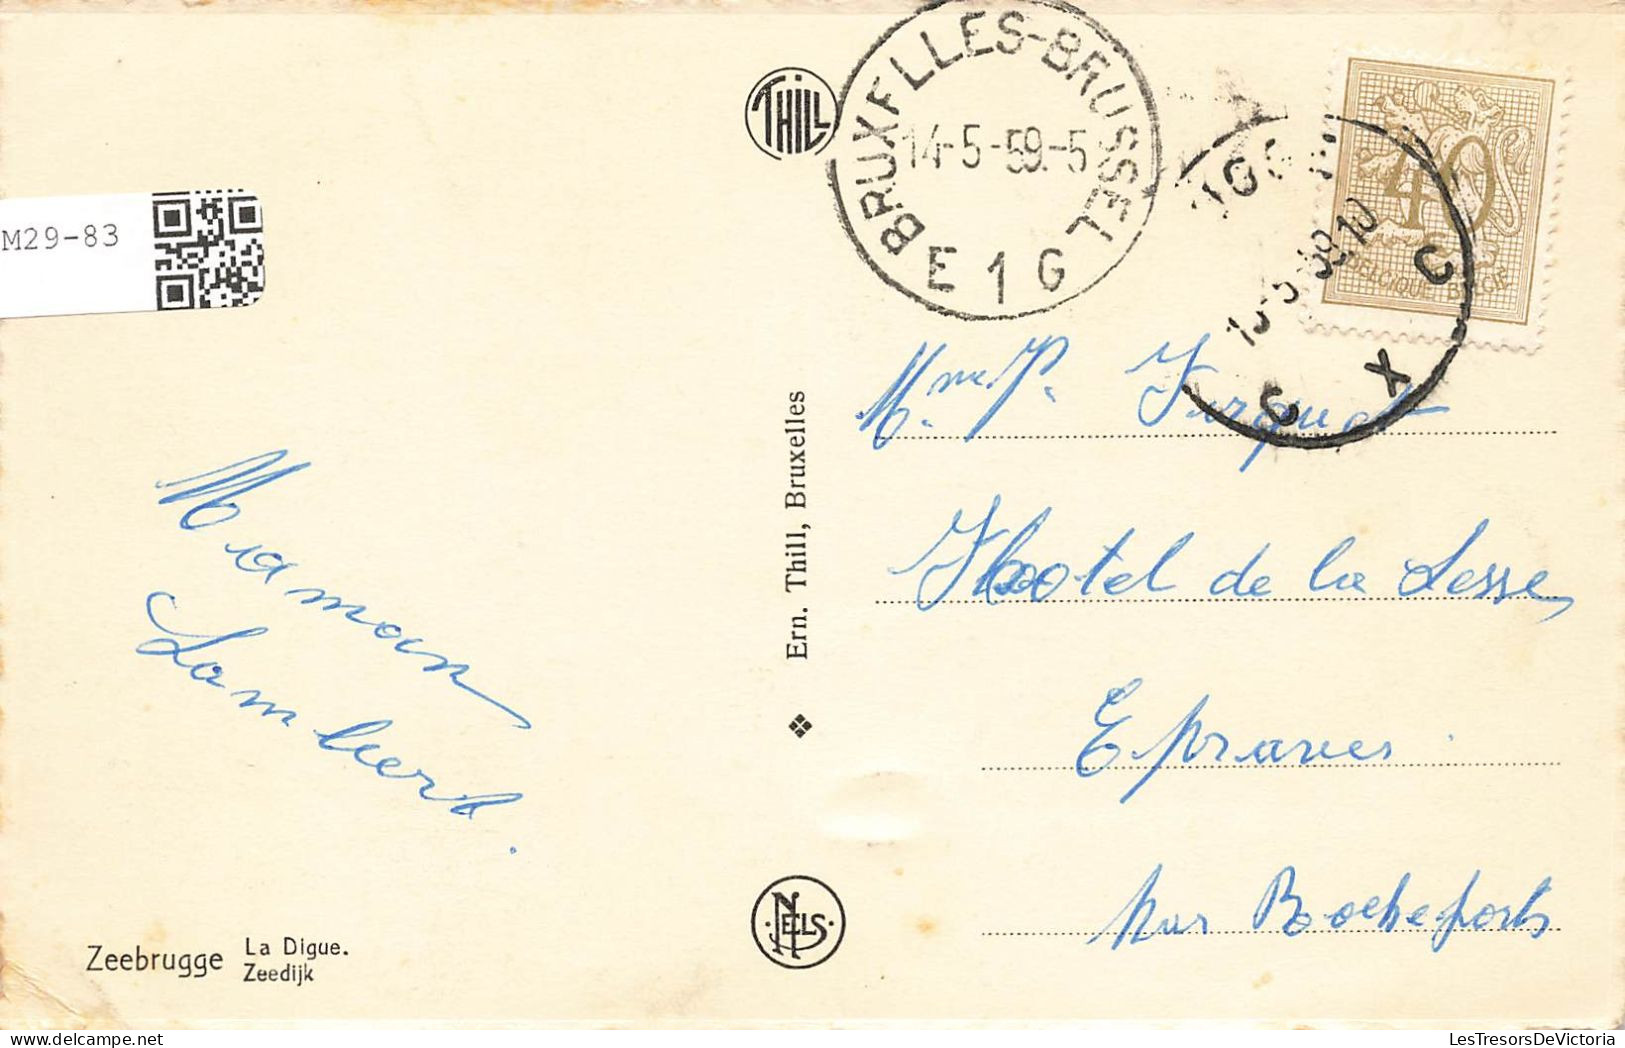 M29-83
THILL
BRUXELLES-BRUSSEL
14-5-59.-5
E 1 G
40
BELGIQUE BELGIE
C X C
Ern. Thill, Bruxelles
Mme P. Jurquet
Hotel de la Lesse
Eprave
par Rochefort
Maman
Lambert.
NELS
Zeebrugge La Digue.
Zeedijk
LesTresorsDeVictoria